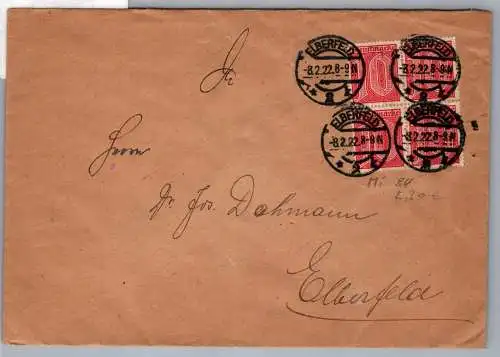 ELBERFELD ELBERFELD
-8.2.22.8-9N -8.2.22.8-9N
ELBERFELD ELBERFELD
-8.2.22.8-9N -8.2.22.8-9N
An
Herrn
Dr. Jos. Dahmann
Elberfeld
Mi